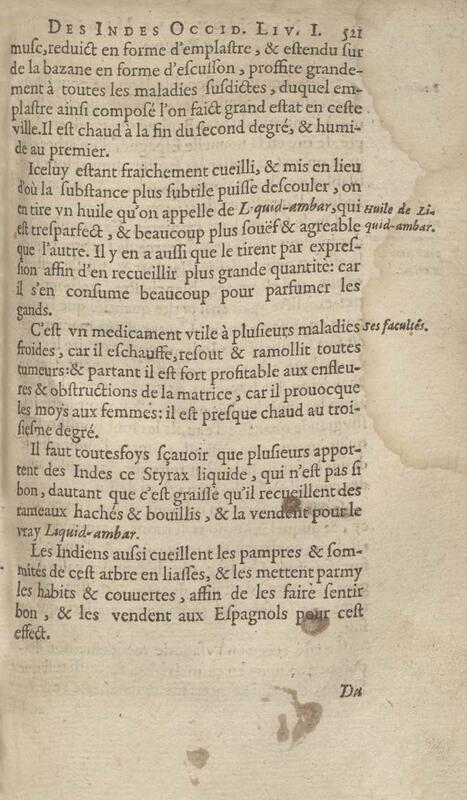 DES INDES OCCID. LIV. I. 521
musc, reduict en forme d'emplastre, & estendu sur
de la bazane en forme d'escusson, proffite grande-
ment à toutes les maladies susdictes, duquel em-
plastre ainsi composé l'on faict grand estat en ceste
ville. Il est chaud à la fin du second degré, & humi-
de au premier.
Iceluy estant fraichement cueilli, & mis en lieu
d'où la substance plus subtile puisse descouler, on
en tire vn huile qu'on appelle de L'quid-ambar, qui
est tresparfect, & beaucoup plus souëf & agreable
que l'autre. Il y en a aussi que le tirent par expres-
sion affin d'en recueillir plus grande quantité: car
il s'en consume beaucoup pour parfumer les
gands.
Huile de Li-
quid-ambar.
C'est vn medicament vtile à plusieurs maladies
froides, car il eschauffe, resout & ramollit toutes
tumeurs: & partant il est fort profitable aux enfleu-
res & obstructions de la matrice, car il prouocque
les moys aux femmes: il est presque chaud au troi-
siesme degré.
Ses facultés.
Il faut toutesfoys sçauoir que plusieurs appor-
tent des Indes ce Styrax liquide, qui n'est pas si
bon, dautant que c'est graisse qu'il recueillent des
rameaux hachés & bouillis, & la vendent pour le
vray Liquid-ambar.
Les Indiens aussi cueillent les pampres & som-
mités de cest arbre en liasses, & les mettent parmy
les habits & couuertes, affin de les faire sentir
bon, & les vendent aux Espagnols pour cest
effect.
Du